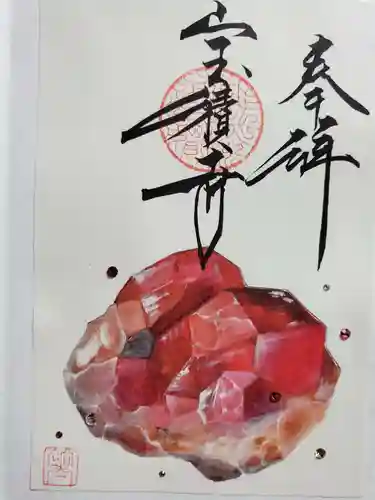 奉拝
宝積寺